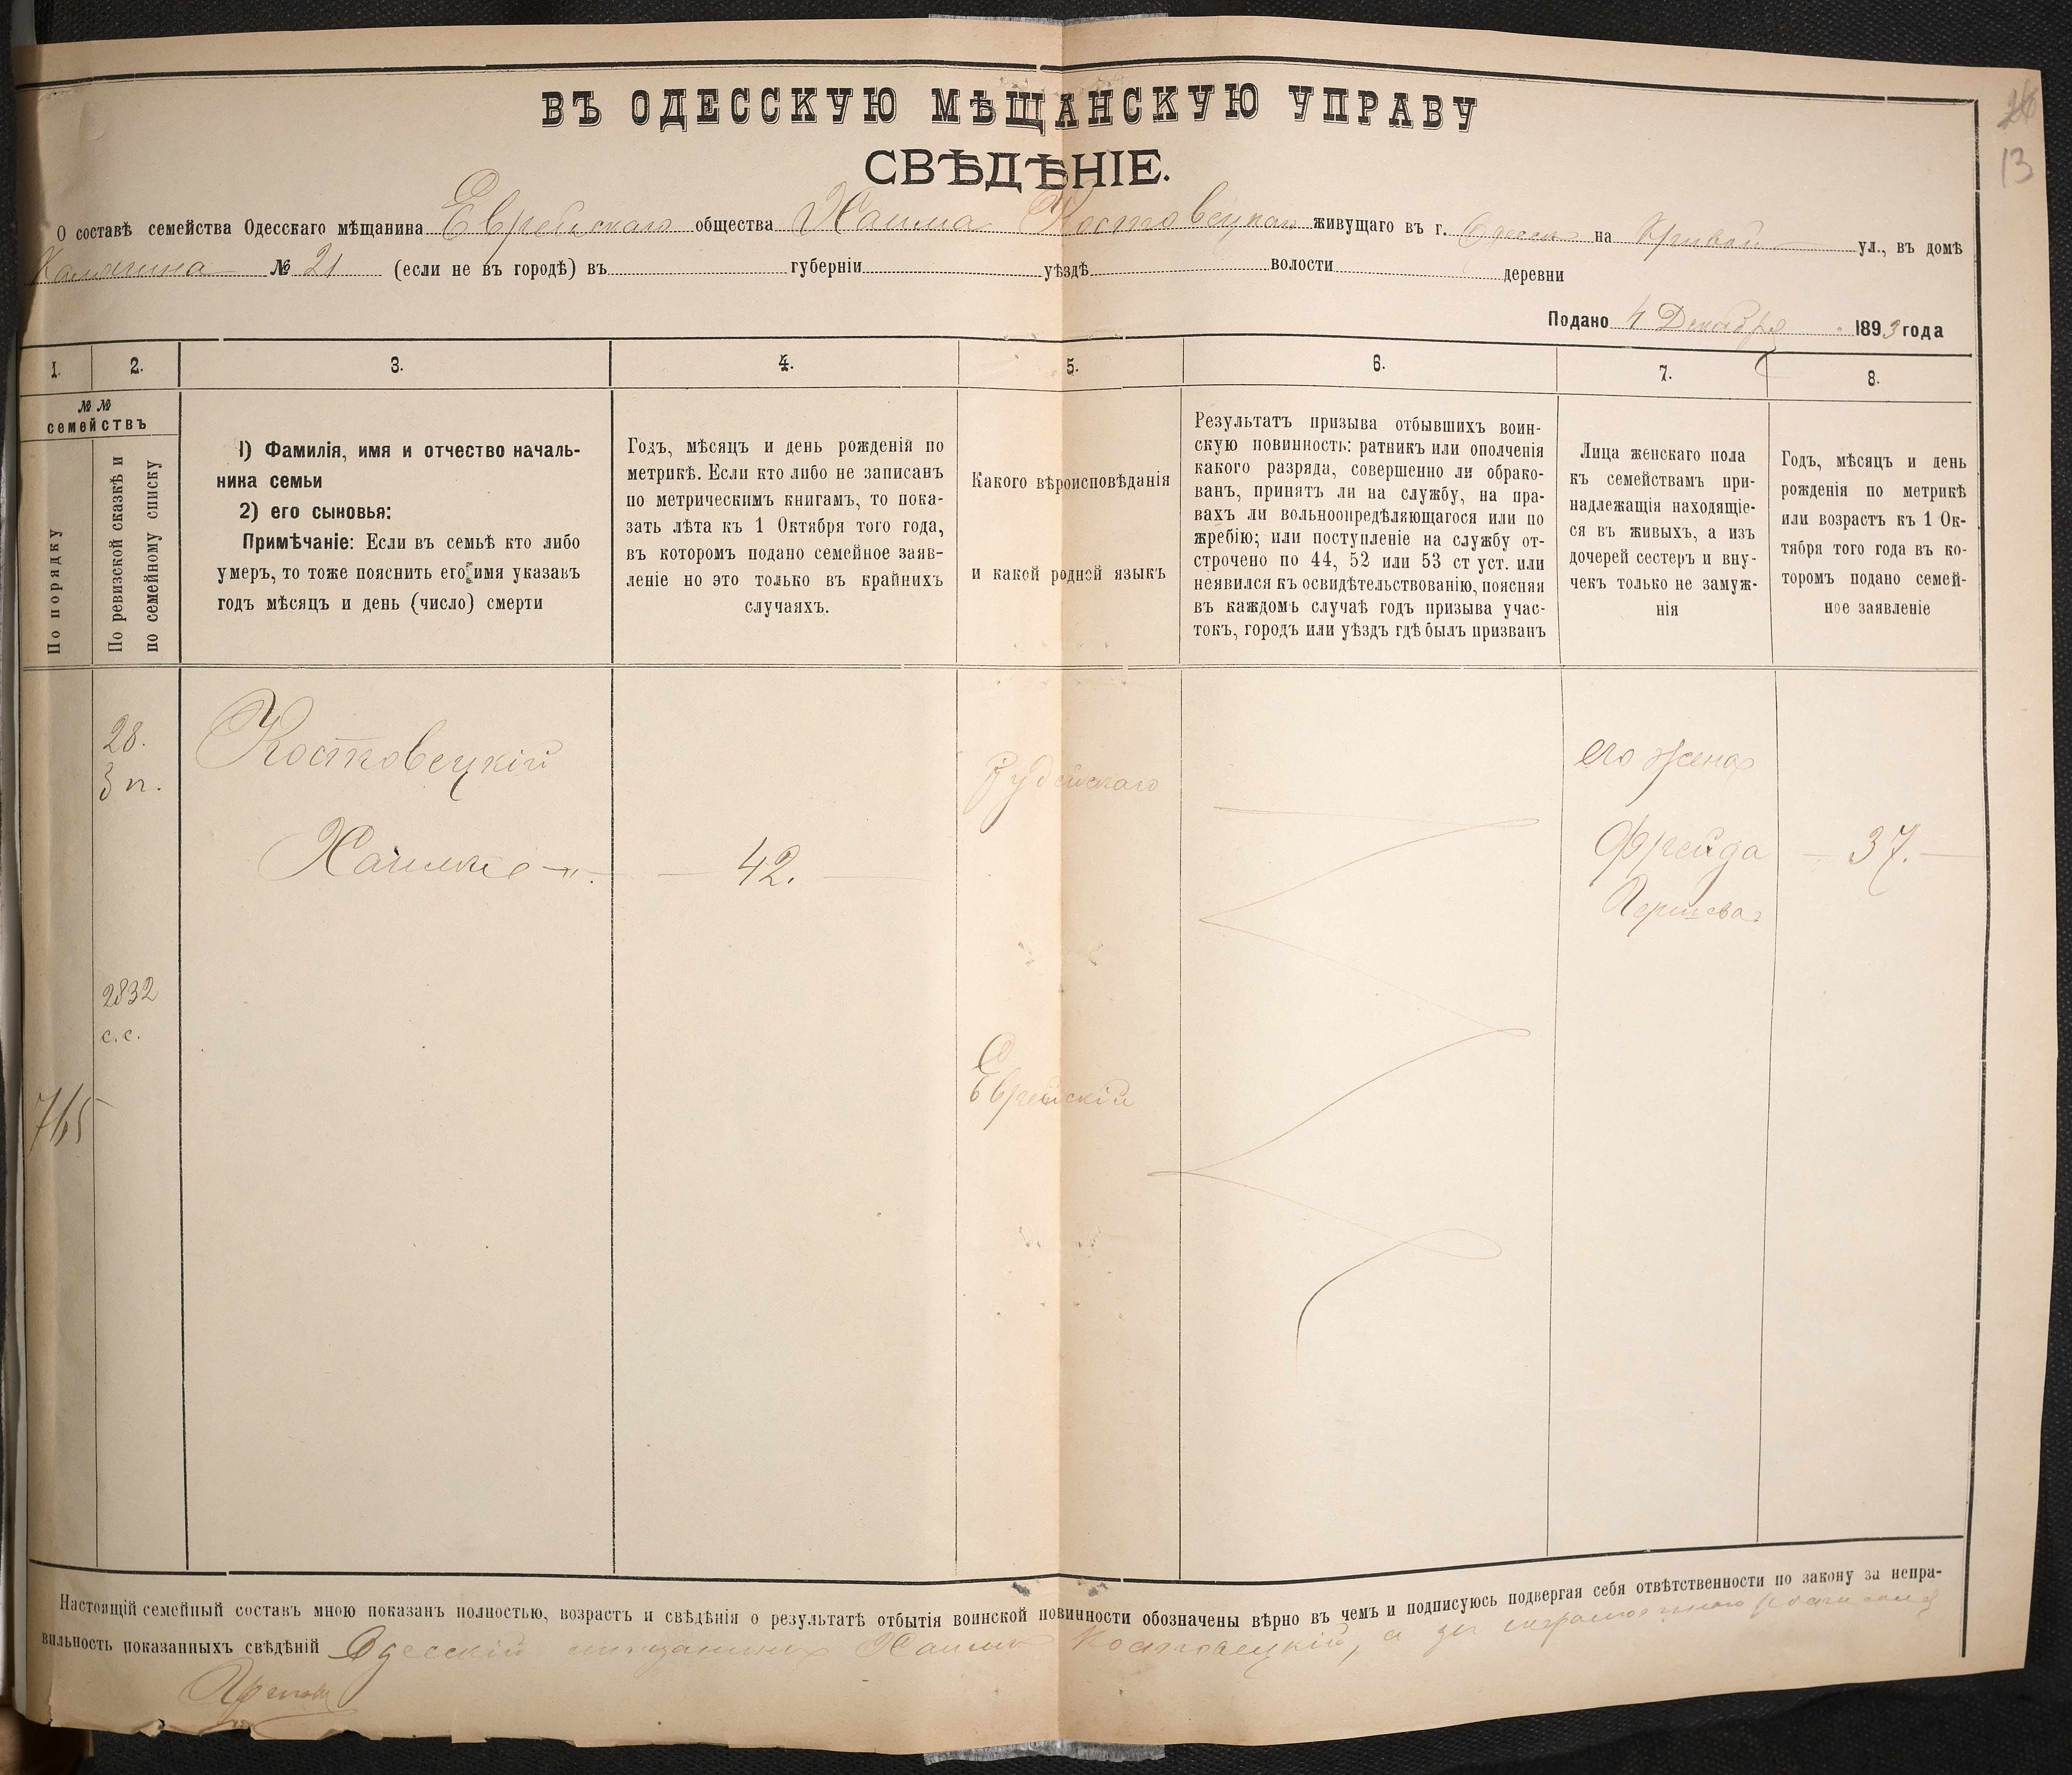 13
ВЪ ОДЕССКУЮ МѢЩАНСКУЮ УПРАВУ
СВѢДѢНІЕ.
О составѣ семейства Одесскаго мѣщанина Еврейскаго общества Хаима Костовецкаго живущаго въ г. Одессе на Кривой ул., въ домѣ
№ 21 (если не въ городѣ) въ губерніи уѣздѣ волости деревни
Подано 4 Декабря 1893 года
1. 2. 3. 4. 5. 6. 7. 8.
№ №
семействъ
По порядку
По ревизской сказкѣ и
по семейному списку
1) Фамилія, имя и отчество началь-
ника семьи
2) его сыновья:
Примѣчаніе: Если въ семьѣ кто либо
умеръ, то тоже пояснить его имя указавъ
годъ мѣсяцъ и день (число) смерти
Годъ, мѣсяцъ и день рожденій по
метрикѣ. Если кто либо не записанъ
по метрическимъ книгамъ, то пока-
зать лѣта къ 1 Октября того года,
въ которомъ подано семейное заяв-
леніе но это только въ крайнихъ
случаяхъ.
Какого вѣроисповѣданія
и какой родной языкъ
Результатъ призыва отбывшихъ воин-
скую повинность: ратникъ или ополченія
какого разряда, совершенно ли обрако-
ванъ, принятъ ли на службу, на пра-
вахъ ли вольноопредѣляющагося или по
жребію; или поступленіе на службу от-
строчено по 44, 52 или 53 ст уст. или
неявился къ освидѣтельствованію, поясняя
въ каждомъ случаѣ годъ призыва учас-
токъ, городъ или уѣздъ гдѣ былъ призванъ
Лица женскаго пола
къ семействамъ при-
надлежащія находящіе-
ся въ живыхъ, а изъ
дочерей сестеръ и вну-
чекъ только не замуж-
нія
Годъ, мѣсяцъ и день
рожденія по метрикѣ
или возрастъ къ 1 Ок-
тября того года въ ко-
торомъ подано семей-
ное заявленіе
28.
3 п.
Костовецкій
Іудейскаго
его жена
Хаимъ
42.
Фрейда
37.
2832
с.с.
Еврейскій
765
Настоящій семейный составъ мною показанъ полностью, возрастъ и свѣдѣнія о результатѣ отбытія воинской повинности обозначены вѣрно въ чемъ и подписуюсь подвергая себя отвѣтственности по закону за непра-
вильность показанныхъ свѣдѣній Одесскій мещанинъ Хаимъ Костовецкій, а за неграмотнаго